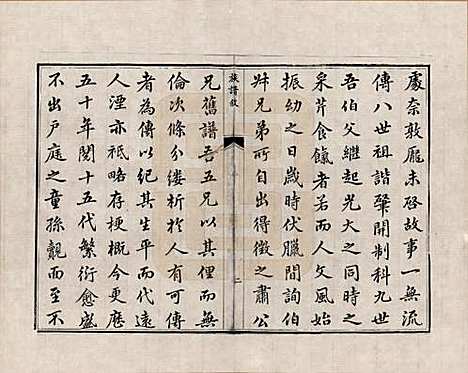 處奈敦龐未啓故事一無流
傳八世祖諧肇開制科九世
吾伯父繼起光大之同時之
采芹食餼者若而人文風始
振幼之日歲時伏臘間詢伯
叔兄弟所自出得徵之肅公
族譜敘
二
兄舊譜吾五兄以其俚而無
倫次條分縷析於人有可傳
者為傳以紀其生平而代遠
人湮亦祗略存梗概今更歷
五十年閱十五代繁衍愈盛
不出戶庭之童孫覿面而至不